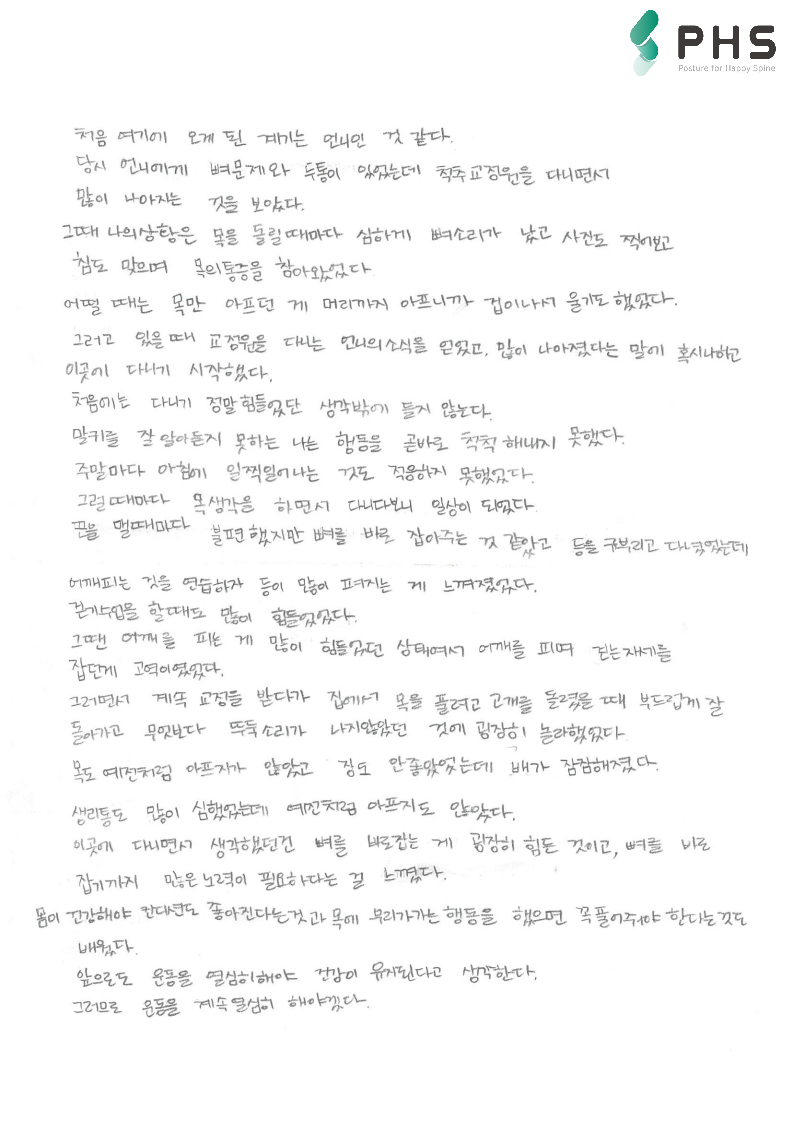 PHS
Posture for Happy Spine
처음 여기에 오게 된 계기는 언니인 것 같다.
당시 언니에게 뼈문제와 두통이 있었는데 척추교정원을 다니면서
많이 나아지는 것을 보았다.
그때 나의상황은 목을 돌릴때마다 심하게 뼈소리가 났고 사진도 찍어보고
침도 맞으며 목의통증을 참아왔었다
어떨 때는 목만 아프던 게 머리까지 아프니까 겁이나서 울기도 했었다.
그러고 있을때 교정원을 다니는 언니의소식을 얻었고, 많이 나아졌다는 말에 혹시나하고
이곳에 다니기 시작했다.
처음에는 다니기 정말힘들었단 생각밖에 들지 않는다.
말귀를 잘알아듣지 못하는 나는 행동을 곧바로 척척 해내지 못했다.
주말마다 아침에 일찍일어나는 것도 적응하지 못했었다.
그럴때마다 목생각을 하면서 다니다보니 일상이 되었다.
끈을 맬때마다 불편했지만 뼈를 바로 잡아주는 것 같았고 등을구부리고 다녔었는데
어깨피는 것을 연습하자 등이 많이 펴지는 게 느껴졌었다.
걷기수업을 할때도 많이 힘들었었다.
그땐 어깨를 피는 게 많이 힘들었던 상태여서 어깨를 피며 걷는자세를
잡단게 고역이였었다.
그러면서 계속 교정을 받다가 집에서 목을 풀려고 고개를 돌렸을 때 부드럽게 잘
돌아가고 무엇보다 뚜둑소리가 나지않았던 것에 굉장히 놀라했었다.
목도 예전처럼 아프지가 않았고 장도 안좋았었는데 배가 잠잠해졌다.
생리통도 많이 심했었는데 예전처럼 아프지도 않았다.
이곳에 다니면서 생각했던건 뼈를 바로잡는 게 굉장히 힘든 것이고, 뼈를 바로
잡기까지 많은노력이 필요하다는 걸 느꼈다.
몸이 건강해야 컨대션도 좋아진다는것과 목에 무리가가는행동을 했으면 꼭풀어주어야 한다는것도
배웠다.
앞으로도 운동을 열심히해야 건강이 유지된다고 생각한다.
그러므로 운동을 계속열심히 해야겠다.